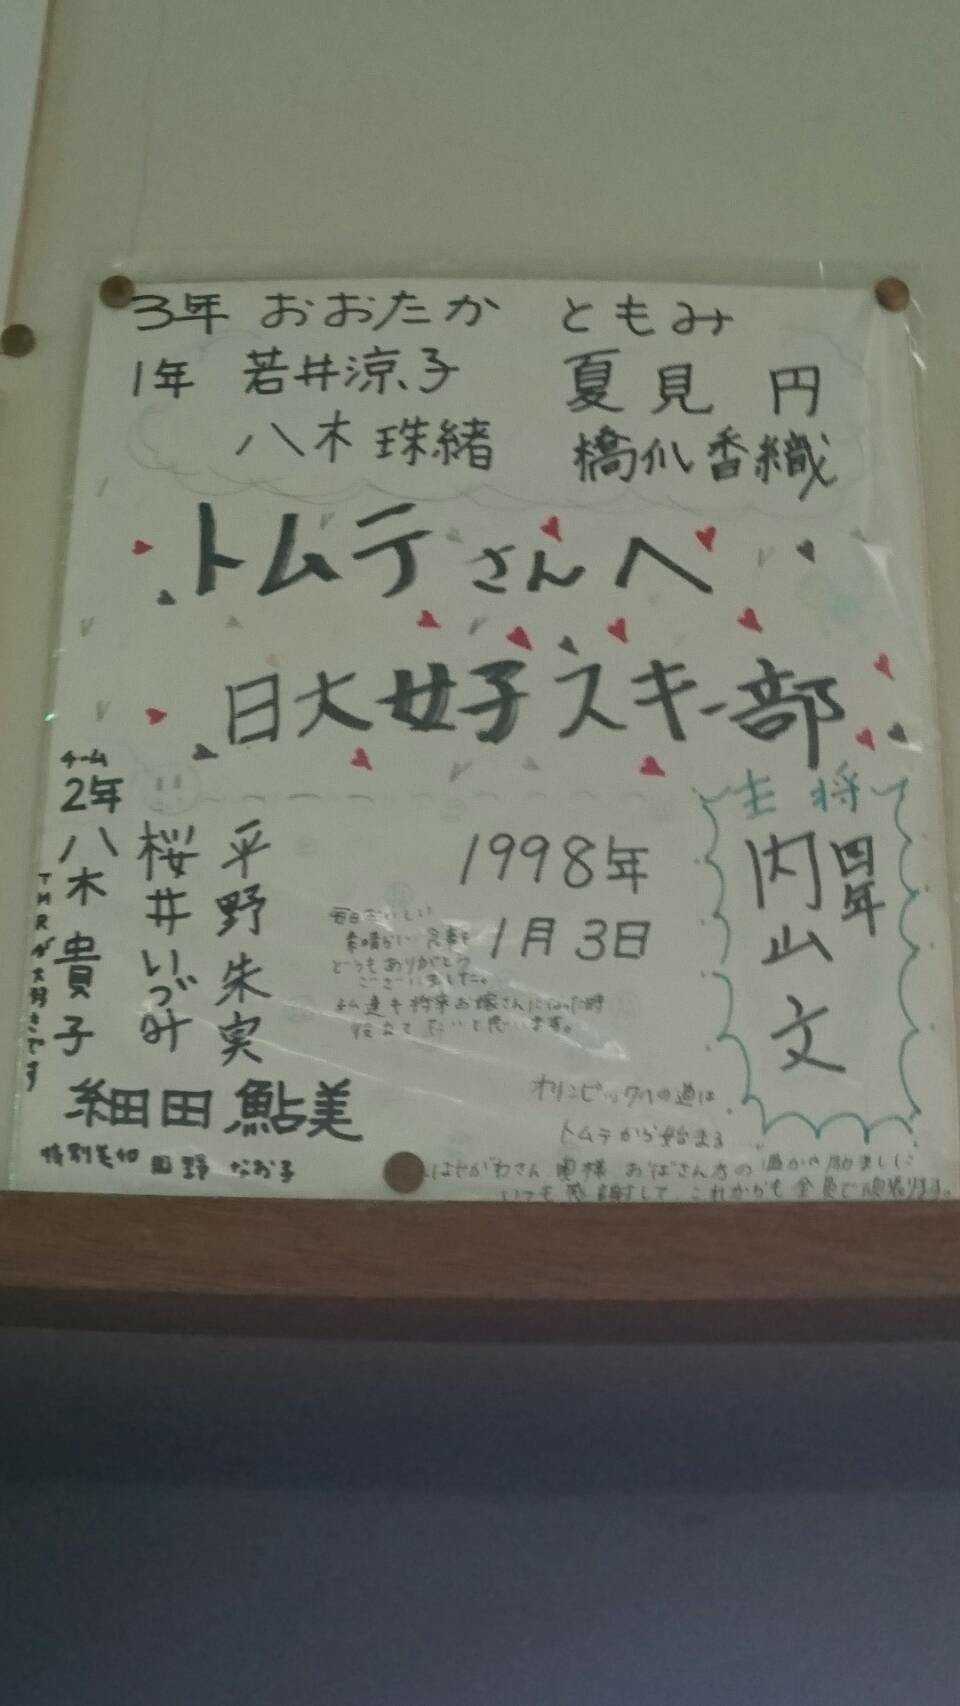 3年 おおたか ともみ
1年 若井涼子 夏見 円
八木 珠緒 橋爪香織
トムテさんへ
日大女子スキー部
チーム
2年
八木 貴子
桜井いづみ
平野朱実
TMRが大好きです
細田 鮎美
特別参加 田野 なお子
1998年
1月3日
毎日おいしい
素晴らしい食事を
どうもありがとう
ございました。
私達も将来お嫁さんになった時
役立てたいと思います。
主将
四年
内山 文
オリンピックへの道は
トムテから始まる
はせがわさん 奥様 おばさん方の温かき励ましに
いつも感謝して これからも全員で頑張ります。